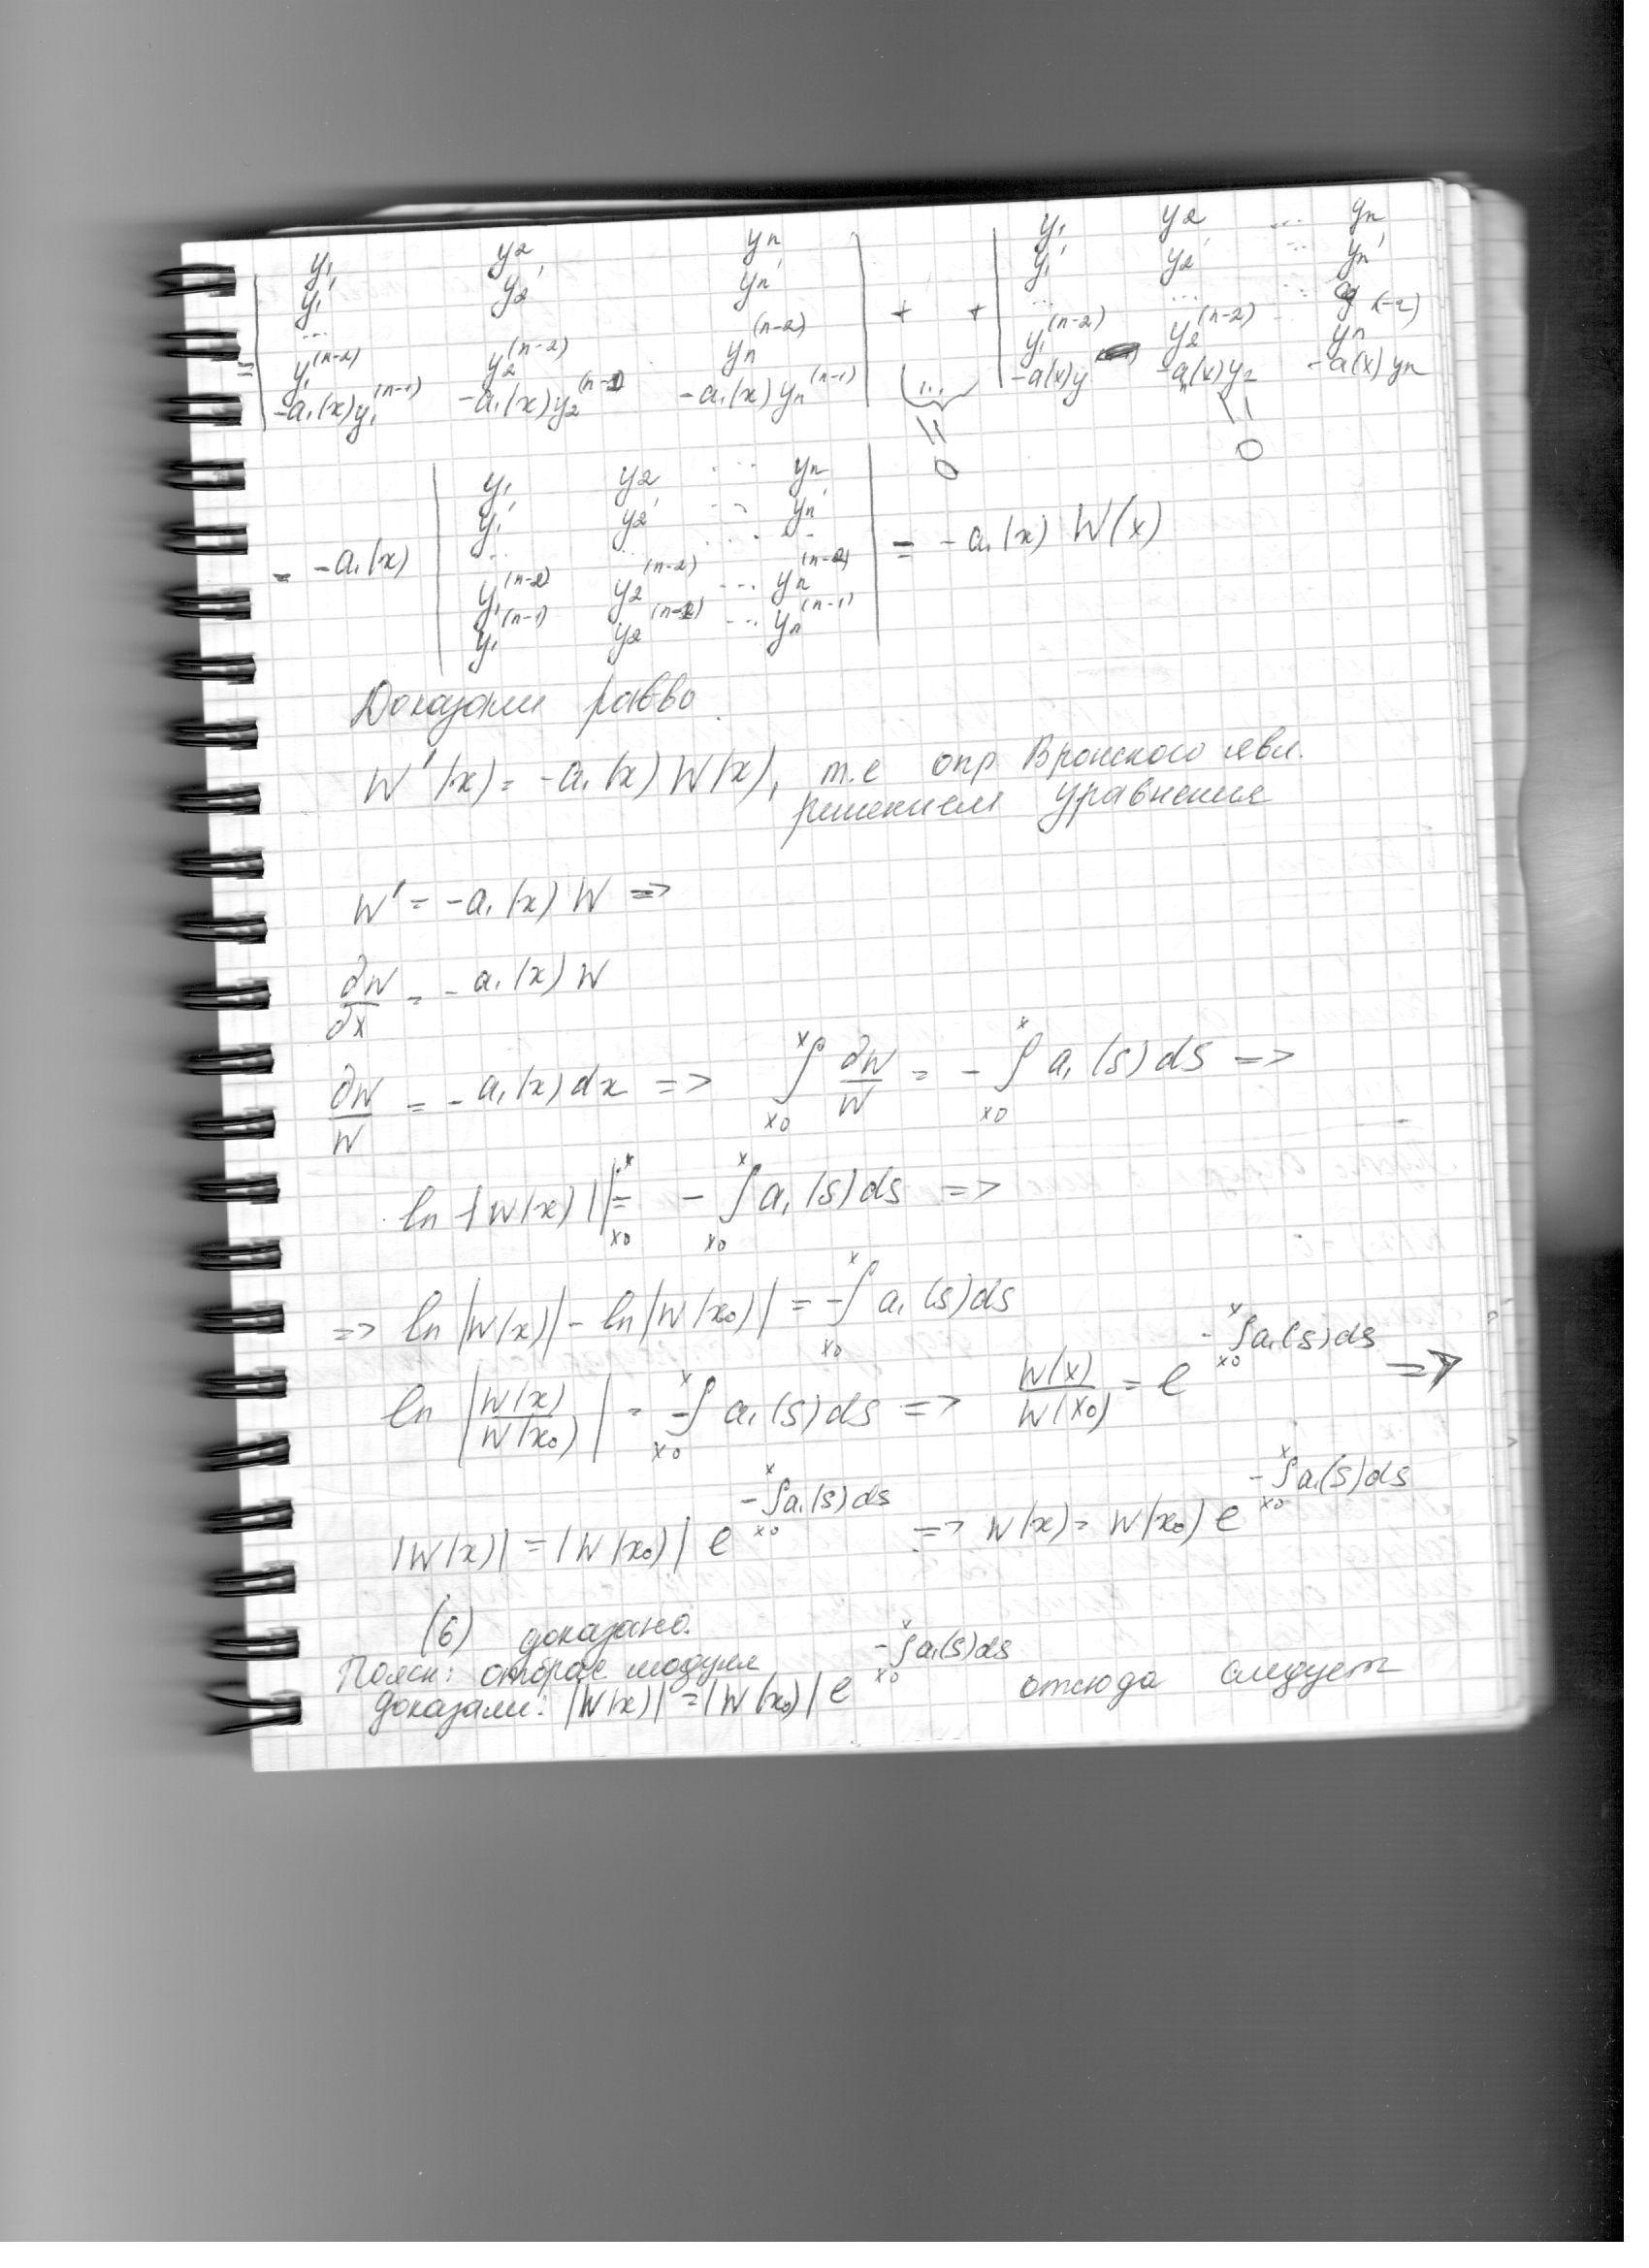 y₁ y₂ yn
y₁' y₂' yn'
...
y₁⁽ⁿ⁻²⁾ y₂⁽ⁿ⁻²⁾ yn⁽ⁿ⁻²⁾
= -a₁(x)y₁⁽ⁿ⁻¹⁾ -a₁(x)y₂⁽ⁿ⁻¹⁾ -a₁(x)yn⁽ⁿ⁻¹⁾ + ... +
= 0
y₁ y₂ ... yn
y₁' y₂' ... yn'
... ... ...
y₁⁽ⁿ⁻²⁾ y₂⁽ⁿ⁻²⁾ yn⁽ⁿ⁻²⁾
-a(x)y -a(x)y₂ -a(x)yn
= 0
y₁ y₂ ... yn
y₁' y₂' ... yn'
... ... ...
= -a₁(x) y₁⁽ⁿ⁻²⁾ y₂⁽ⁿ⁻²⁾ ... yn⁽ⁿ⁻²⁾ = -a₁(x) W(x)
y₁⁽ⁿ⁻¹⁾ y₂⁽ⁿ⁻¹⁾ ... yn⁽ⁿ⁻¹⁾
Доказали рав-во
W'(x) = -a₁(x) W(x), т.е опр Вронского явл.
решением уравнения
W' = -a₁(x) W =>
∂W/∂x = -a₁(x) W
∂W/W = -a₁(x) dx => ∫ₓ₀ˣ ∂W/W = - ∫ₓ₀ˣ a₁(s) ds =>
ln |W(x)| |ₓ₀ˣ = - ∫ₓ₀ˣ a₁(s) ds =>
=> ln |W(x)| - ln |W(x₀)| = - ∫ₓ₀ˣ a₁(s) ds
ln |W(x)/W(x₀)| = - ∫ₓ₀ˣ a₁(s) ds => W(x)/W(x₀) = e^(- ∫ₓ₀ˣ a₁(s) ds) =>
|W(x)| = |W(x₀)| e^(- ∫ₓ₀ˣ a₁(s) ds) => W(x) = W(x₀) e^(- ∫ₓ₀ˣ a₁(s) ds)
(6) доказано.
Поясн: отбрас модуля
доказали: |W(x)| = |W(x₀)| e^(- ∫ₓ₀ˣ a₁(s) ds) отсюда следует